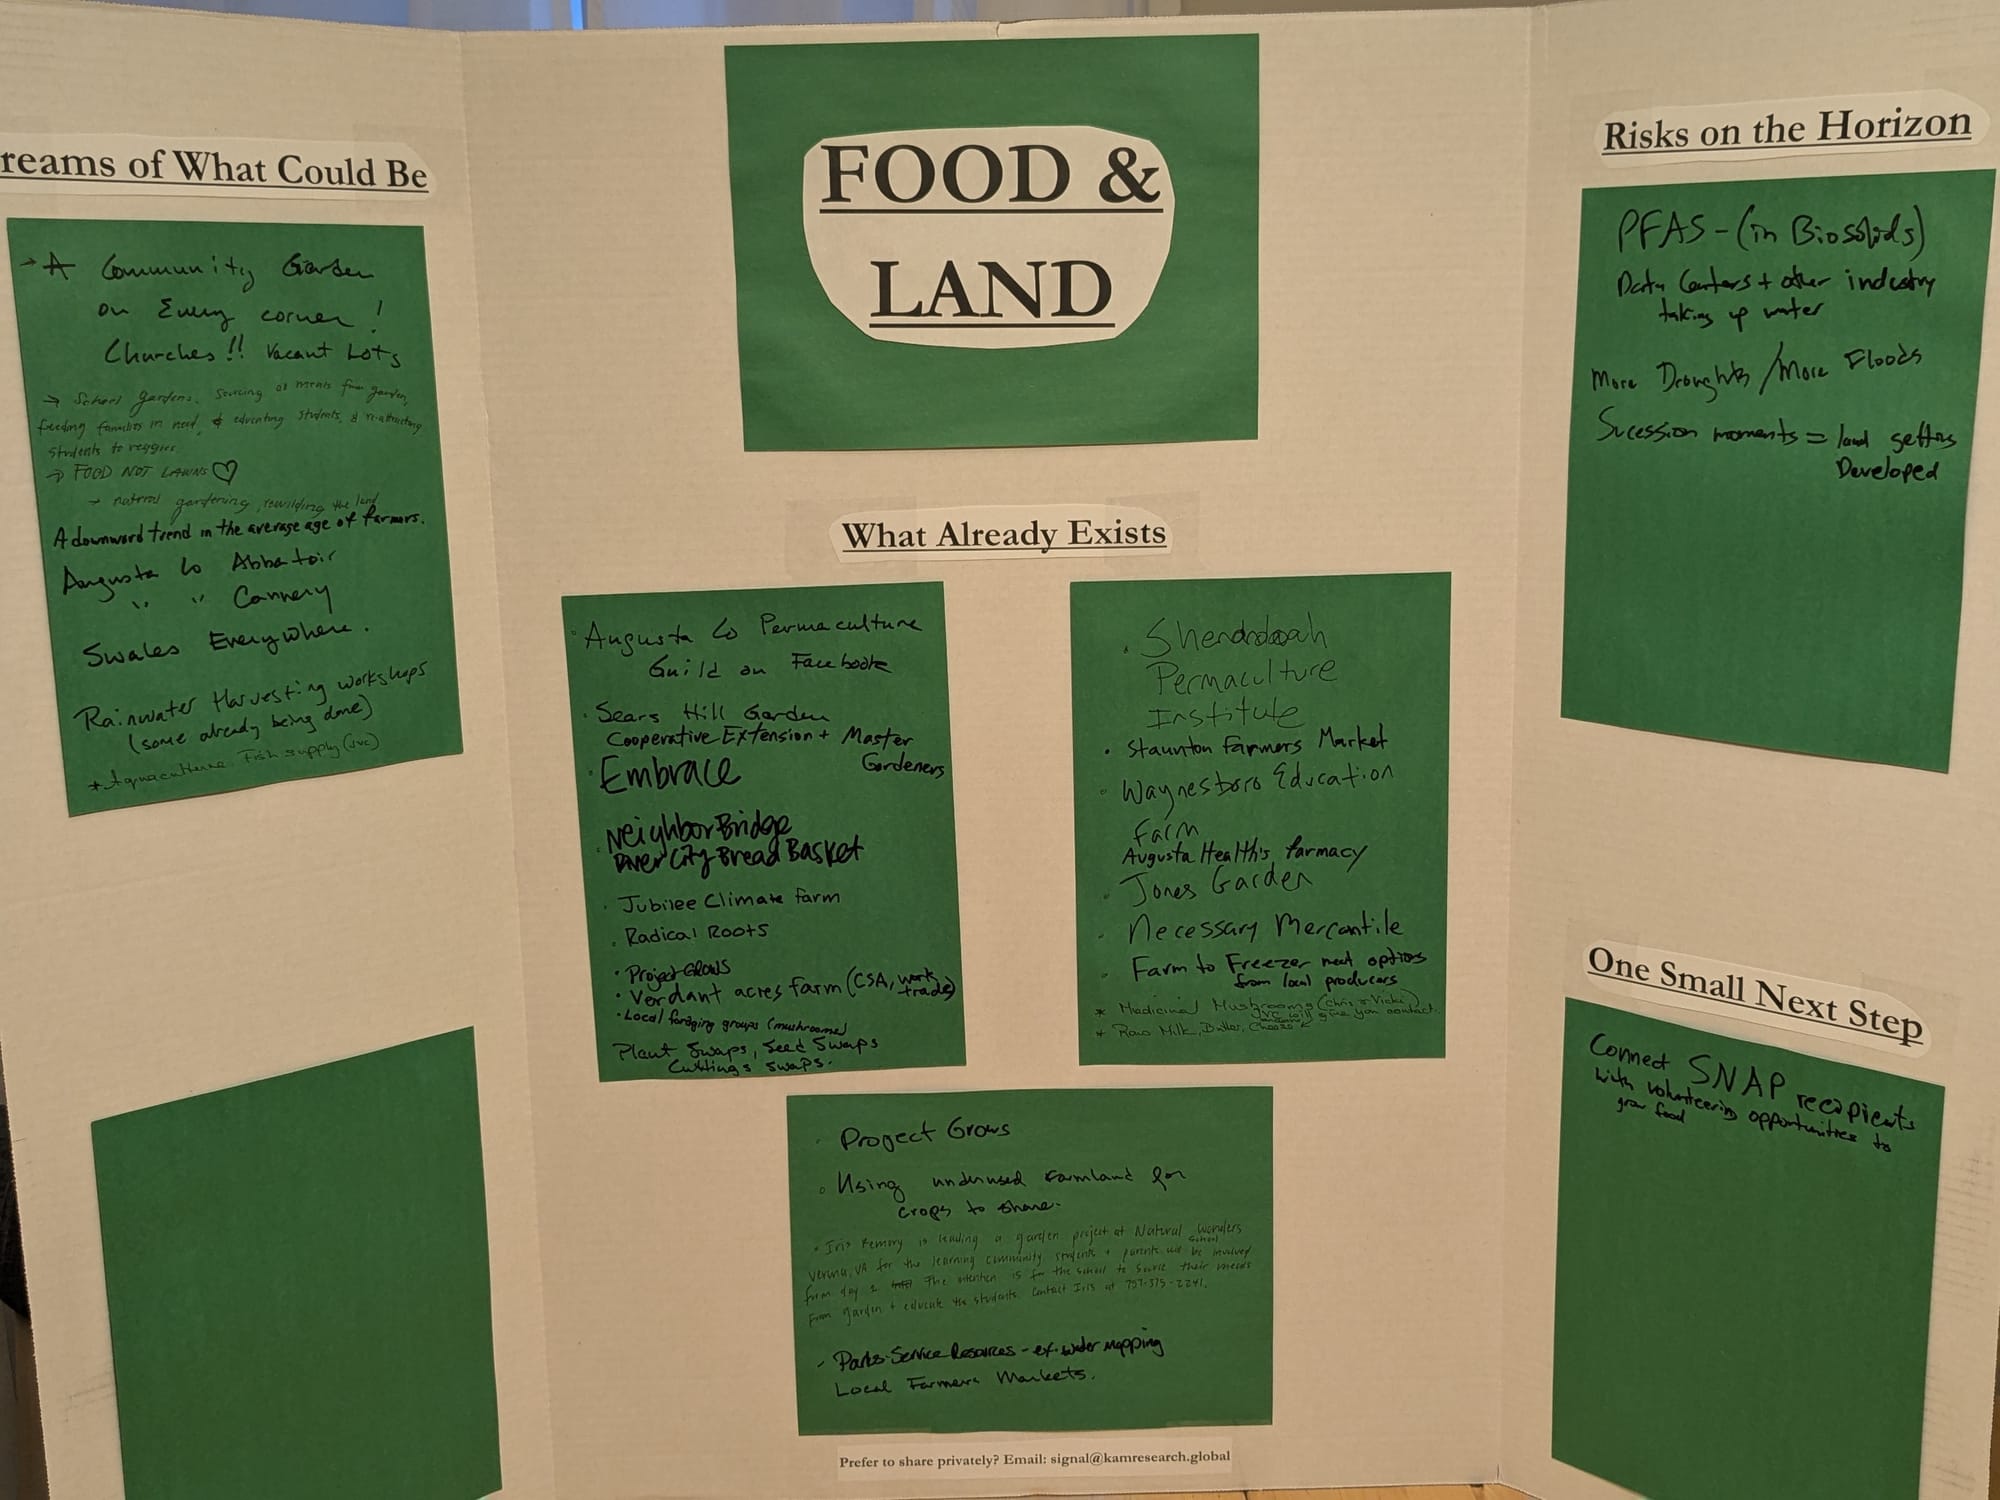 reams of What Could Be
→ A Community Garden
on Every corner!
Churches!! Vacant Lots
→ School gardens. Sourcing of meals from garden,
feeding families in need, & educating students, & re-attracting
students to veggies
→ FOOD NOT LAWNS ♡
→ natural gardening, rewilding the land
A downward trend in the average age of farmers.
Augusta Co Abbatoir
" " Cannery
Swales Everywhere.
Rainwater Harvesting workshops
(some already being done)
* Aquaculture Fish supply (JVC)
FOOD &
LAND
What Already Exists
• Augusta Co Permaculture
Guild on Facebook
• Sears Hill Garden
Cooperative Extension + Master
Gardeners
• Embrace
• NeighborBridge
River City Bread Basket
• Jubilee Climate Farm
• Radical Roots
• Project GROWS
• Verdant acres farm (CSA, work
trade)
• Local foraging groups (mushrooms)
Plant Swaps, Seed Swaps
Cuttings swaps.
• Shendodoah
Permaculture
Institute
• Staunton Farmers Market
• Waynesboro Education
Farm
Augusta Health's farmacy
• Jones Garden
• Necessary Mercantile
• Farm to Freezer meat options
from local producers
* Medicinal Mushrooms (Chris & Vicki)
JVC will give you contact.
* Raw Milk, Butter, Cheese
• Project Grows
• Using underused farmland for
crops to share.
• Iris is leading a garden project at Natural Wonders
School
Verona, VA for the learning community students + parents will be involved
from day 1 The intention is for the school to source their meals
from garden + educate the students. Contact Iris at 757-375-2241.
- Parks Service Resources - ex. water mapping
Local Farmers Markets.
Prefer to share privately? Email: signal@kamresearch.global
Risks on the Horizon
PFAS - (in Biosolids)
Data Centers + other industry
taking up water
More Droughts / More Floods
Sucession moments = land getting
Developed
One Small Next Step
Connect SNAP recipients
with volunteering opportunities to
grow food